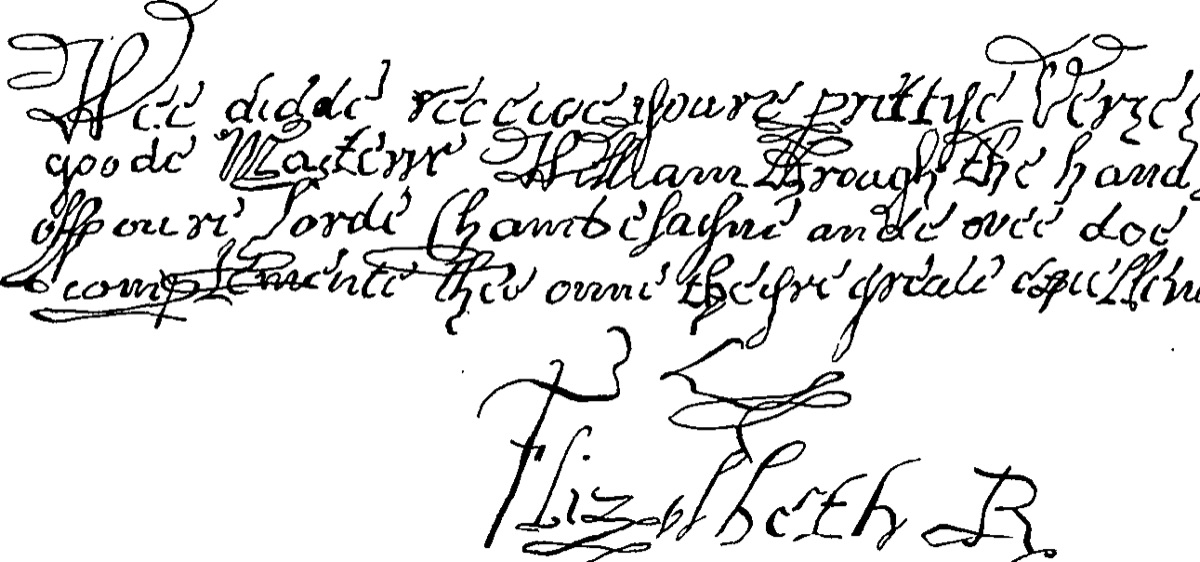 Wee didde receive youre prittye Verses
goode Masterre William through the hands
off oure Lorde Chamberlayne ande wee doe
complemente thee onne theyre greate
Elizabeth R